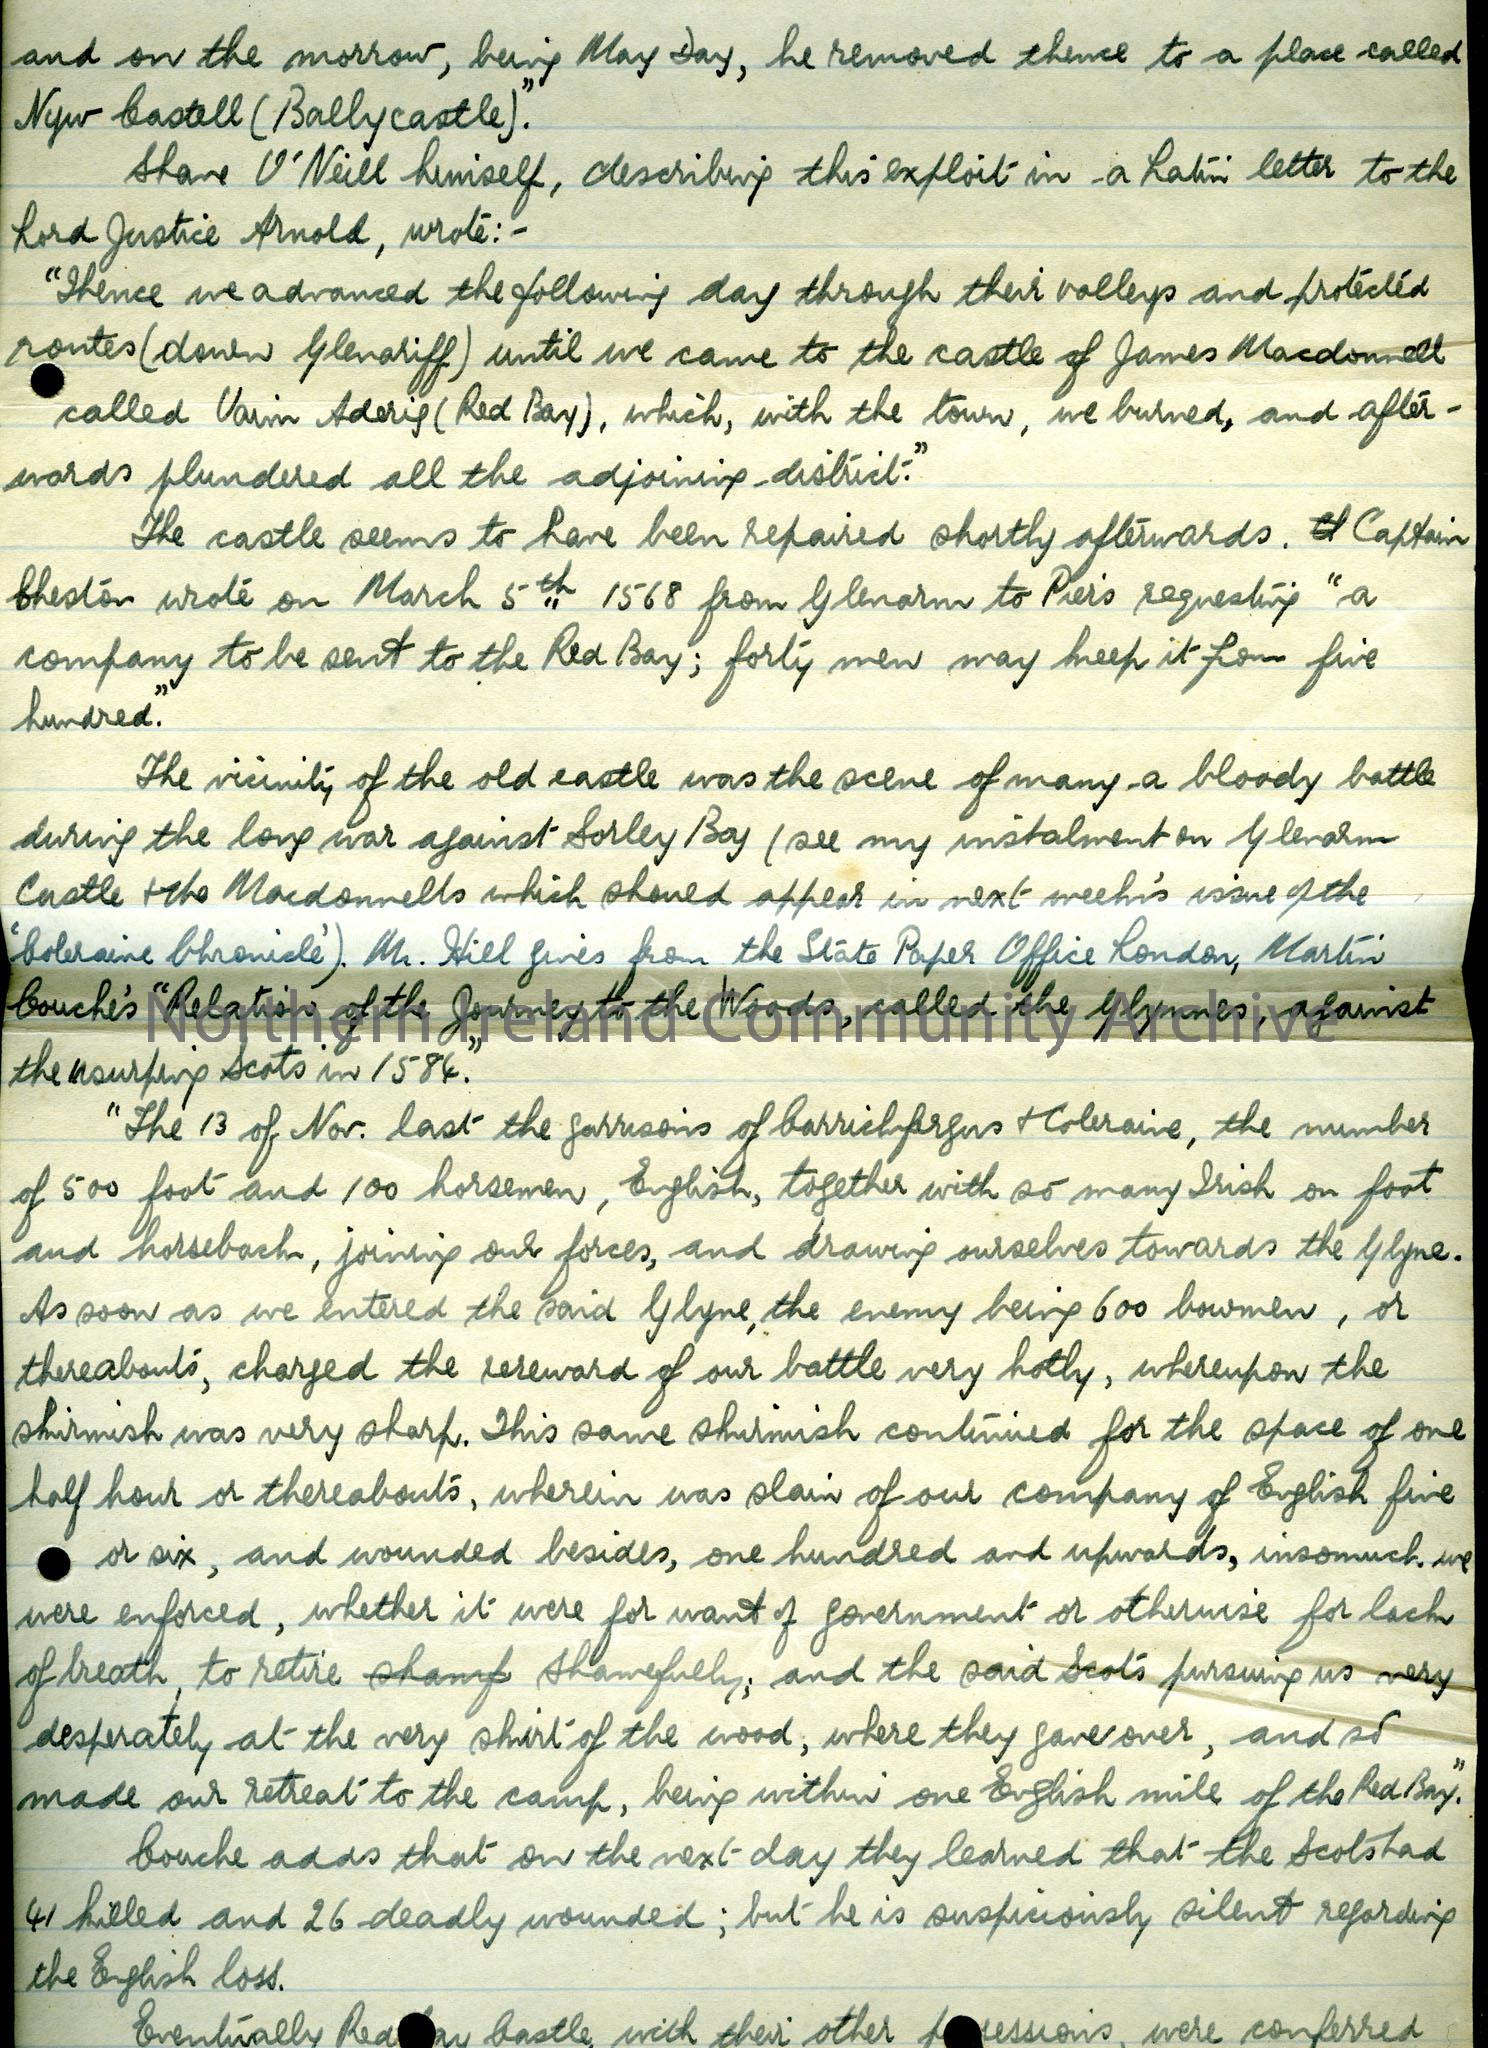 and on the morrow, being May Day, he removed thence to a place called
Nyw Castell (Ballycastle)."
Shane O'Neill himself, describing this exploit in a Latin letter to the
Lord Justice Arnold, wrote:-
"Thence we advanced the following day through their valleys and protected
routes (down Glenariff) until we came to the castle of James Macdonnell
called Uaim Aderig (Red Bay), which, with the town, we burned, and after-
wards plundered all the adjoining district."
The castle seems to have been repaired shortly afterwards. Captain
Cheston wrote on March 5th 1568 from Glenarm to Piers requesting "a
company to be sent to the Red Bay; forty men may keep it from five
hundred."
The vicinity of the old castle was the scene of many a bloody battle
during the long war against Sorley Boy (see my instalment on Glenarm
Castle + the Macdonnells which should appear in next week's issue of the
'Coleraine Chronicle'). Mr. Hill gives from the State Paper Office London, Martin
Couche's "Relation of the Journey to the Woods, called the Glynnes, against
the usurping Scots in 1584."
Northern Ireland Community Archive
"The 13 of Nov. last the garrisons of Carrickfergus + Coleraine, the number
of 500 foot and 100 horsemen, English, together with so many Irish on foot
and horseback, joining our forces, and drawing ourselves towards the Glyne.
As soon as we entered the said Glyne, the enemy being 600 bowmen, or
thereabouts, charged the rereward of our battle very hotly, whereupon the
skirmish was very sharp. This same skirmish continued for the space of one
half hour or thereabouts, wherein was slain of our company of English five
or six, and wounded besides, one hundred and upwards, insomuch we
were enforced, whether it were for want of government or otherwise for lack
of breath, to retire shamf shamefully; and the said Scots pursuing us very
desperately at the very skirt of the wood, where they gave over, and so
made our retreat to the camp, being within one English mile of the Red Bay."
Couche adds that on the next day they learned that the Scots had
41 killed and 26 deadly wounded; but he is suspiciously silent regarding
the English loss.
Eventually Red Bay Castle, with their other possessions, were conferred